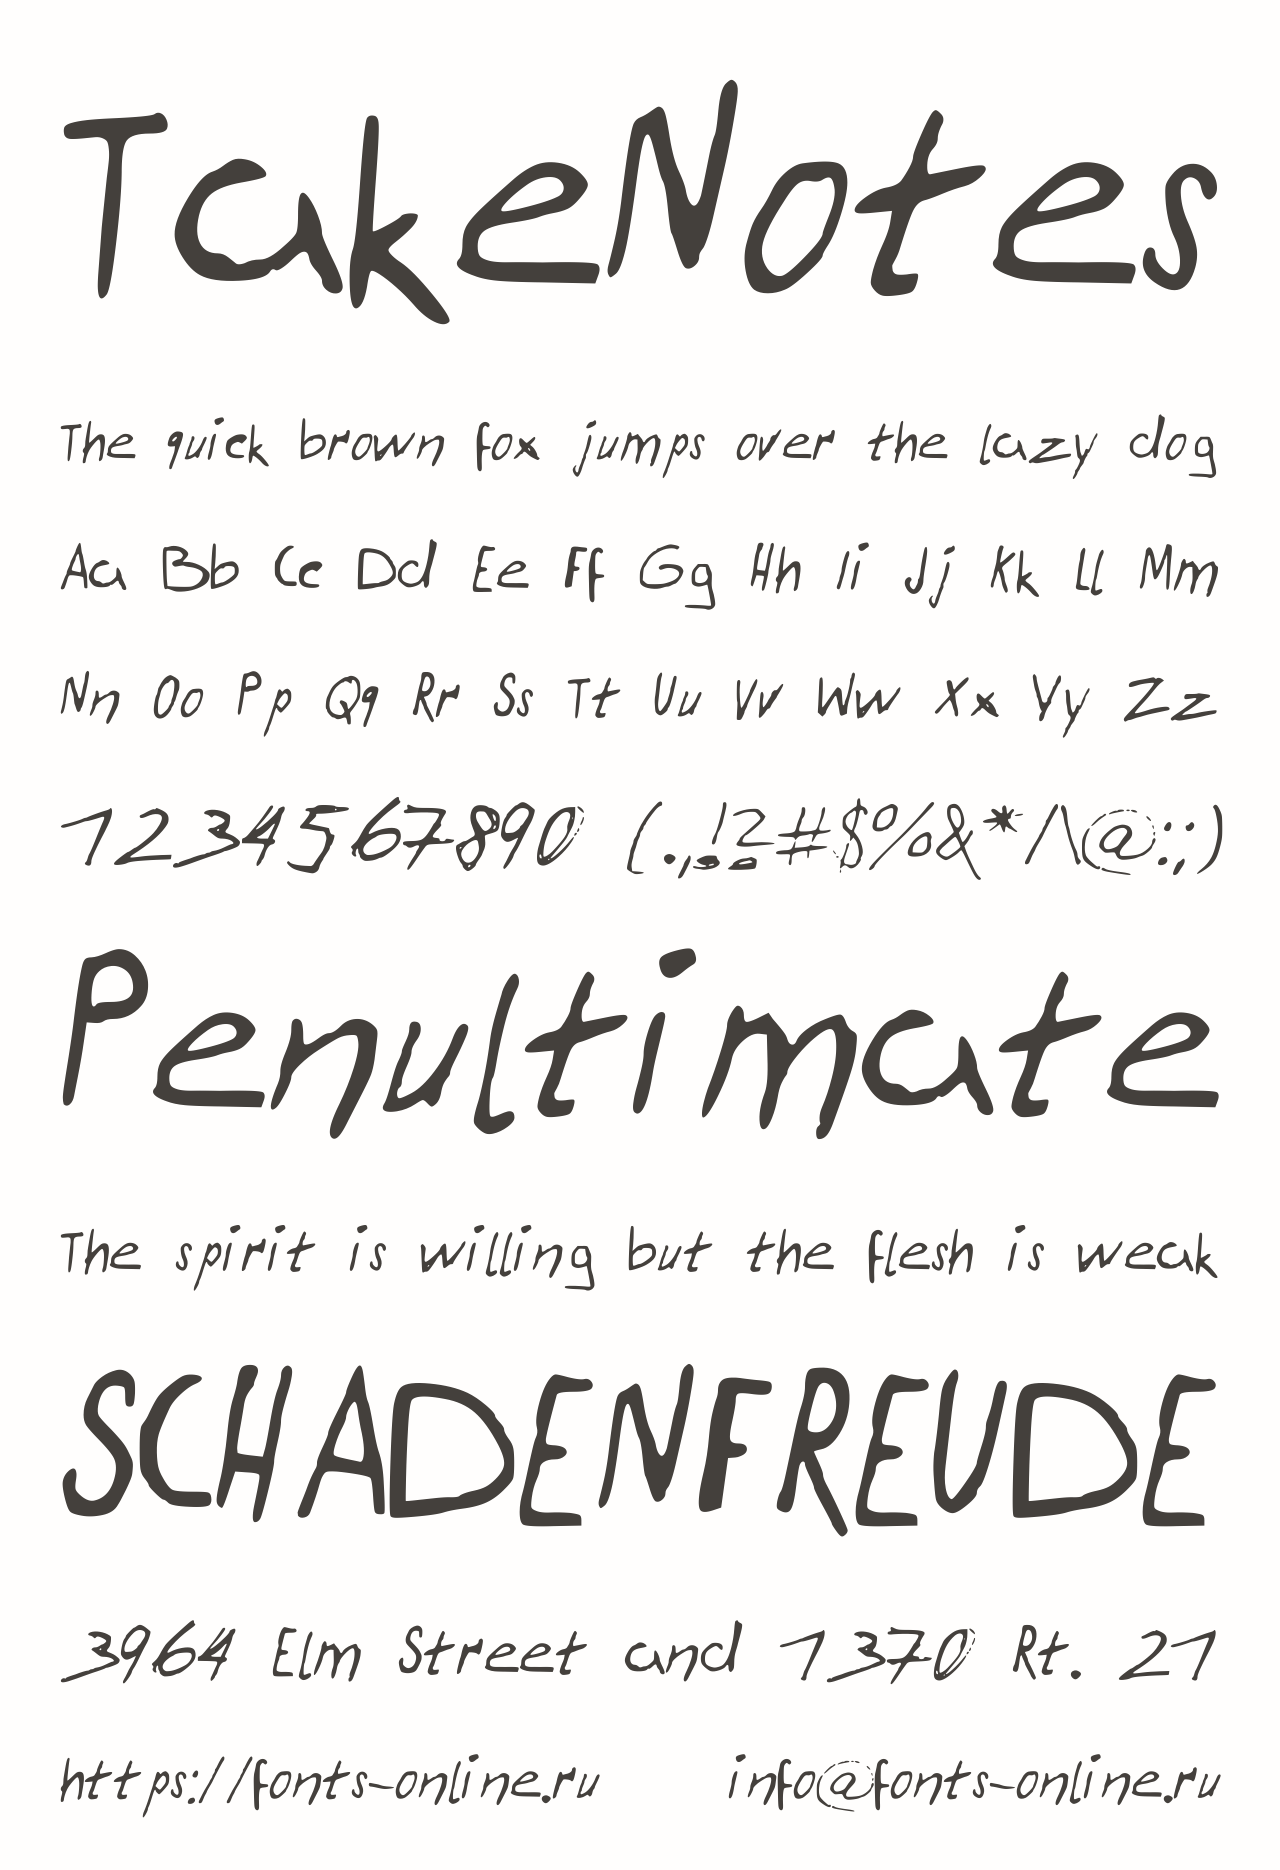 TakeNotes
The quick brown fox jumps over the lazy dog
Aa Bb Cc Dd Ee Ff Gg Hh Ii Jj Kk Ll Mm
Nn Oo Pp Qq Rr Ss Tt Uu Vv Ww Xx Yy Zz
1234567890 (.,!?#$%&*/\@:;)
Penultimate
The spirit is willing but the flesh is weak
SCHADENFREUDE
3964 Elm Street and 1370 Rt. 21
https://fonts-online.ru info@fonts-online.ru